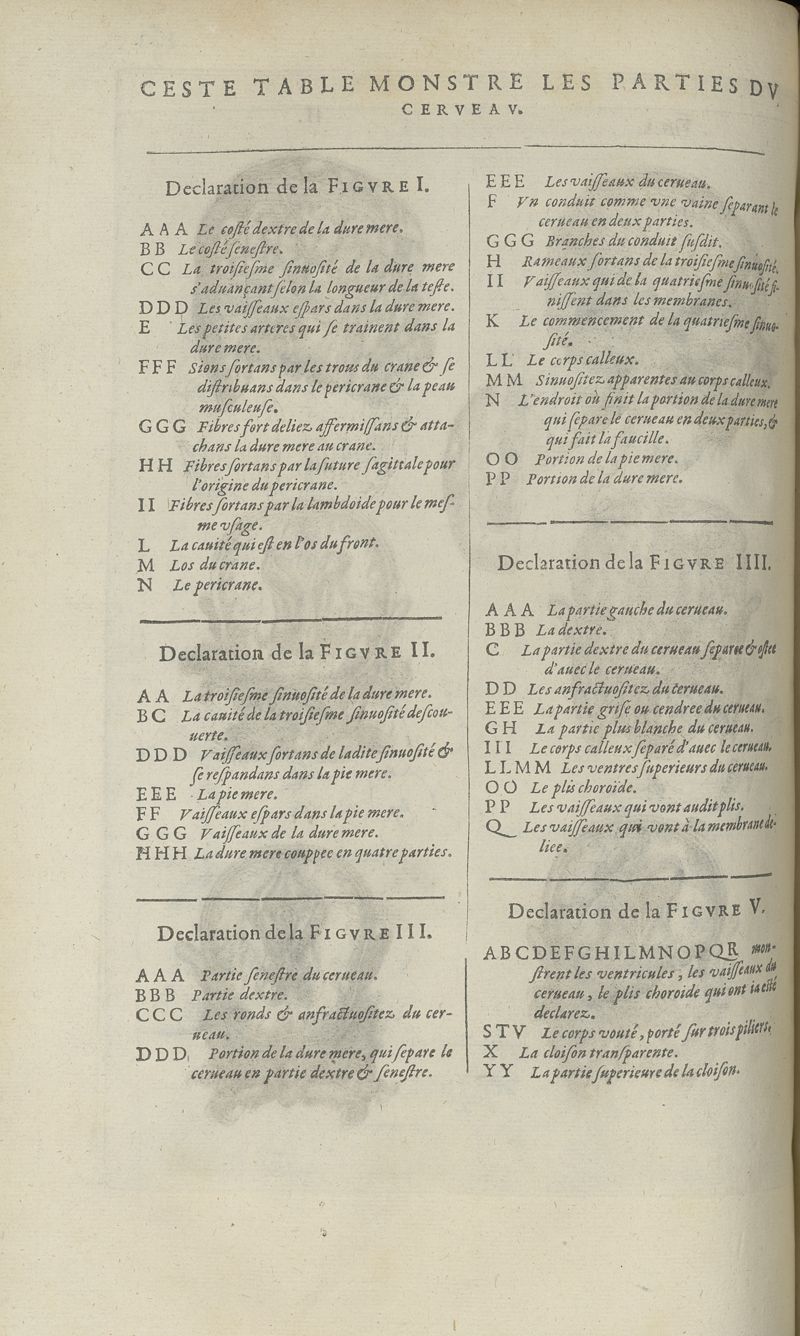 CESTE TABLE MONSTRE LES PARTIES DV
CERVEAV.
Declaration de la FIGVRE I.
A A A Le coſté dextre de la dure mere.
B B Le coſté ſeneſtre.
C C La troiſieſme ſinuoſité de la dure mere
s'aduançant ſelon la longueur de la teſte.
D D D Les vaiſſeaux eſpars dans la dure mere.
E Les petites arteres qui ſe trainent dans la
dure mere.
F F F Sions ſortans par les trous du crane & ſe
diſtribuans dans le pericrane & la peau
muſculeuſe.
G G G Fibres fort deliez affermiſſans & atta-
chans la dure mere au crane.
H H Fibres ſortans par la ſuture ſagittale pour
l'origine du pericrane.
I I Fibres ſortans par la lambdoide pour le meſ-
me vſage.
L La cauité qui eſt en l'os du front.
M Los du crane.
N Le pericrane.
Declaration de la FIGVRE II.
A A La troiſieſme ſinuoſité de la dure mere.
B C La cauité de la troiſieſme ſinuoſité deſcou-
uerte.
D D D Vaiſſeaux ſortans de ladite ſinuoſité &
ſe reſpandans dans la pie mere.
E E E La pie mere.
F F Vaiſſeaux eſpars dans la pie mere.
G G G Vaiſſeaux de la dure mere.
H H H La dure mere couppee en quatre parties.
Declaration de la FIGVRE III.
A A A Partie ſeneſtre du cerueau.
B B B Partie dextre.
C C C Les ronds & anfractuoſitez du cer-
ueau.
D D D Portion de la dure mere, qui ſepare le
cerueau en partie dextre & ſeneſtre.
E E E Les vaiſſeaux du cerueau.
F Vn conduit comme vne vaine ſeparant le
cerueau en deux parties.
G G G Branches du conduit ſuſdit.
H Rameaux ſortans de la troiſieſme ſinuoſité.
I I Vaiſſeaux qui de la quatrieſme ſinuoſité fi-
niſſent dans les membranes.
K Le commencement de la quatrieſme ſinuo-
ſité.
L L Le corps calleux.
M M Sinuoſitez apparentes au corps calleux.
N L'endroit où finit la portion de la dure mere
qui ſepare le cerueau en deux parties, &
qui fait la faucille.
O O Portion de la pie mere.
P P Portion de la dure mere.
Declaration de la FIGVRE IIII.
A A A La partie gauche du cerueau.
B B B La dextre.
C La partie dextre du cerueau ſeparee & oſtee
d'auec le cerueau.
D D Les anfractuoſitez du cerueau.
E E E La partie griſe ou cendree du cerueau.
G H La partie plus blanche du cerueau.
I I I Le corps calleux ſeparé d'auec le cerueau.
L L M M Les ventres ſuperieurs du cerueau.
O O Le plis choroide.
P P Les vaiſſeaux qui vont audit plis.
Q Les vaiſſeaux qui vont à la membrane de-
liee.
Declaration de la FIGVRE V.
A B C D E F G H I L M N O P Q R mon-
ſtrent les ventricules, les vaiſſeaux du
cerueau, le plis choroide qui ont ia eſté
declarez.
S T V Le corps vouté, porté ſur trois piliers.
X La cloiſon tranſparente.
Y Y La partie ſuperieure de la cloiſon.